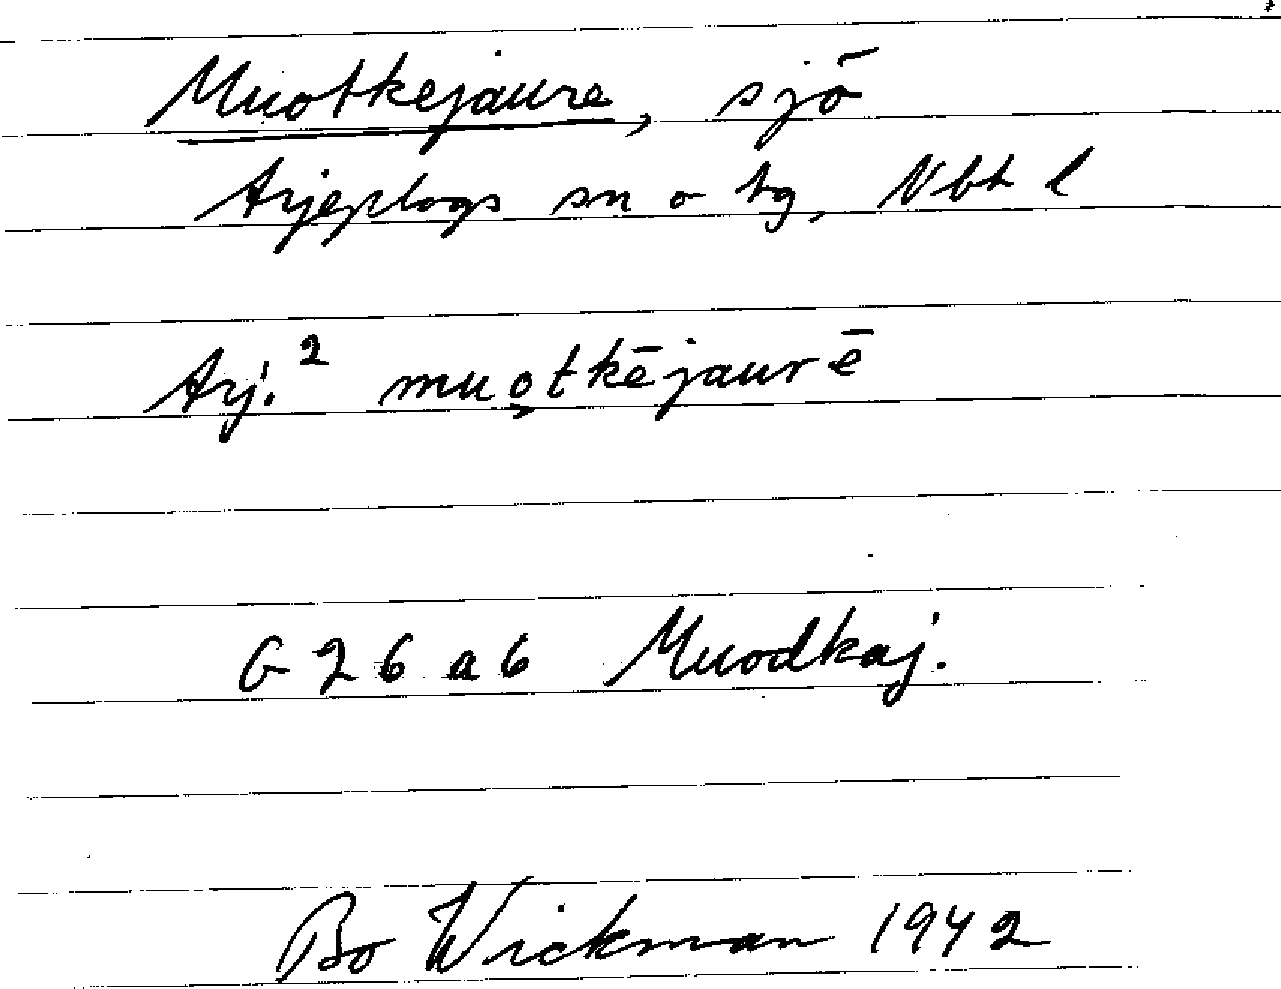 Muotkejaure, sjö
Arjeplogs sn o tg, Nbt l
Arj.² muo̬tkējaurē
G 26 a 6 Muodkaj.
Bo Wickman 1942